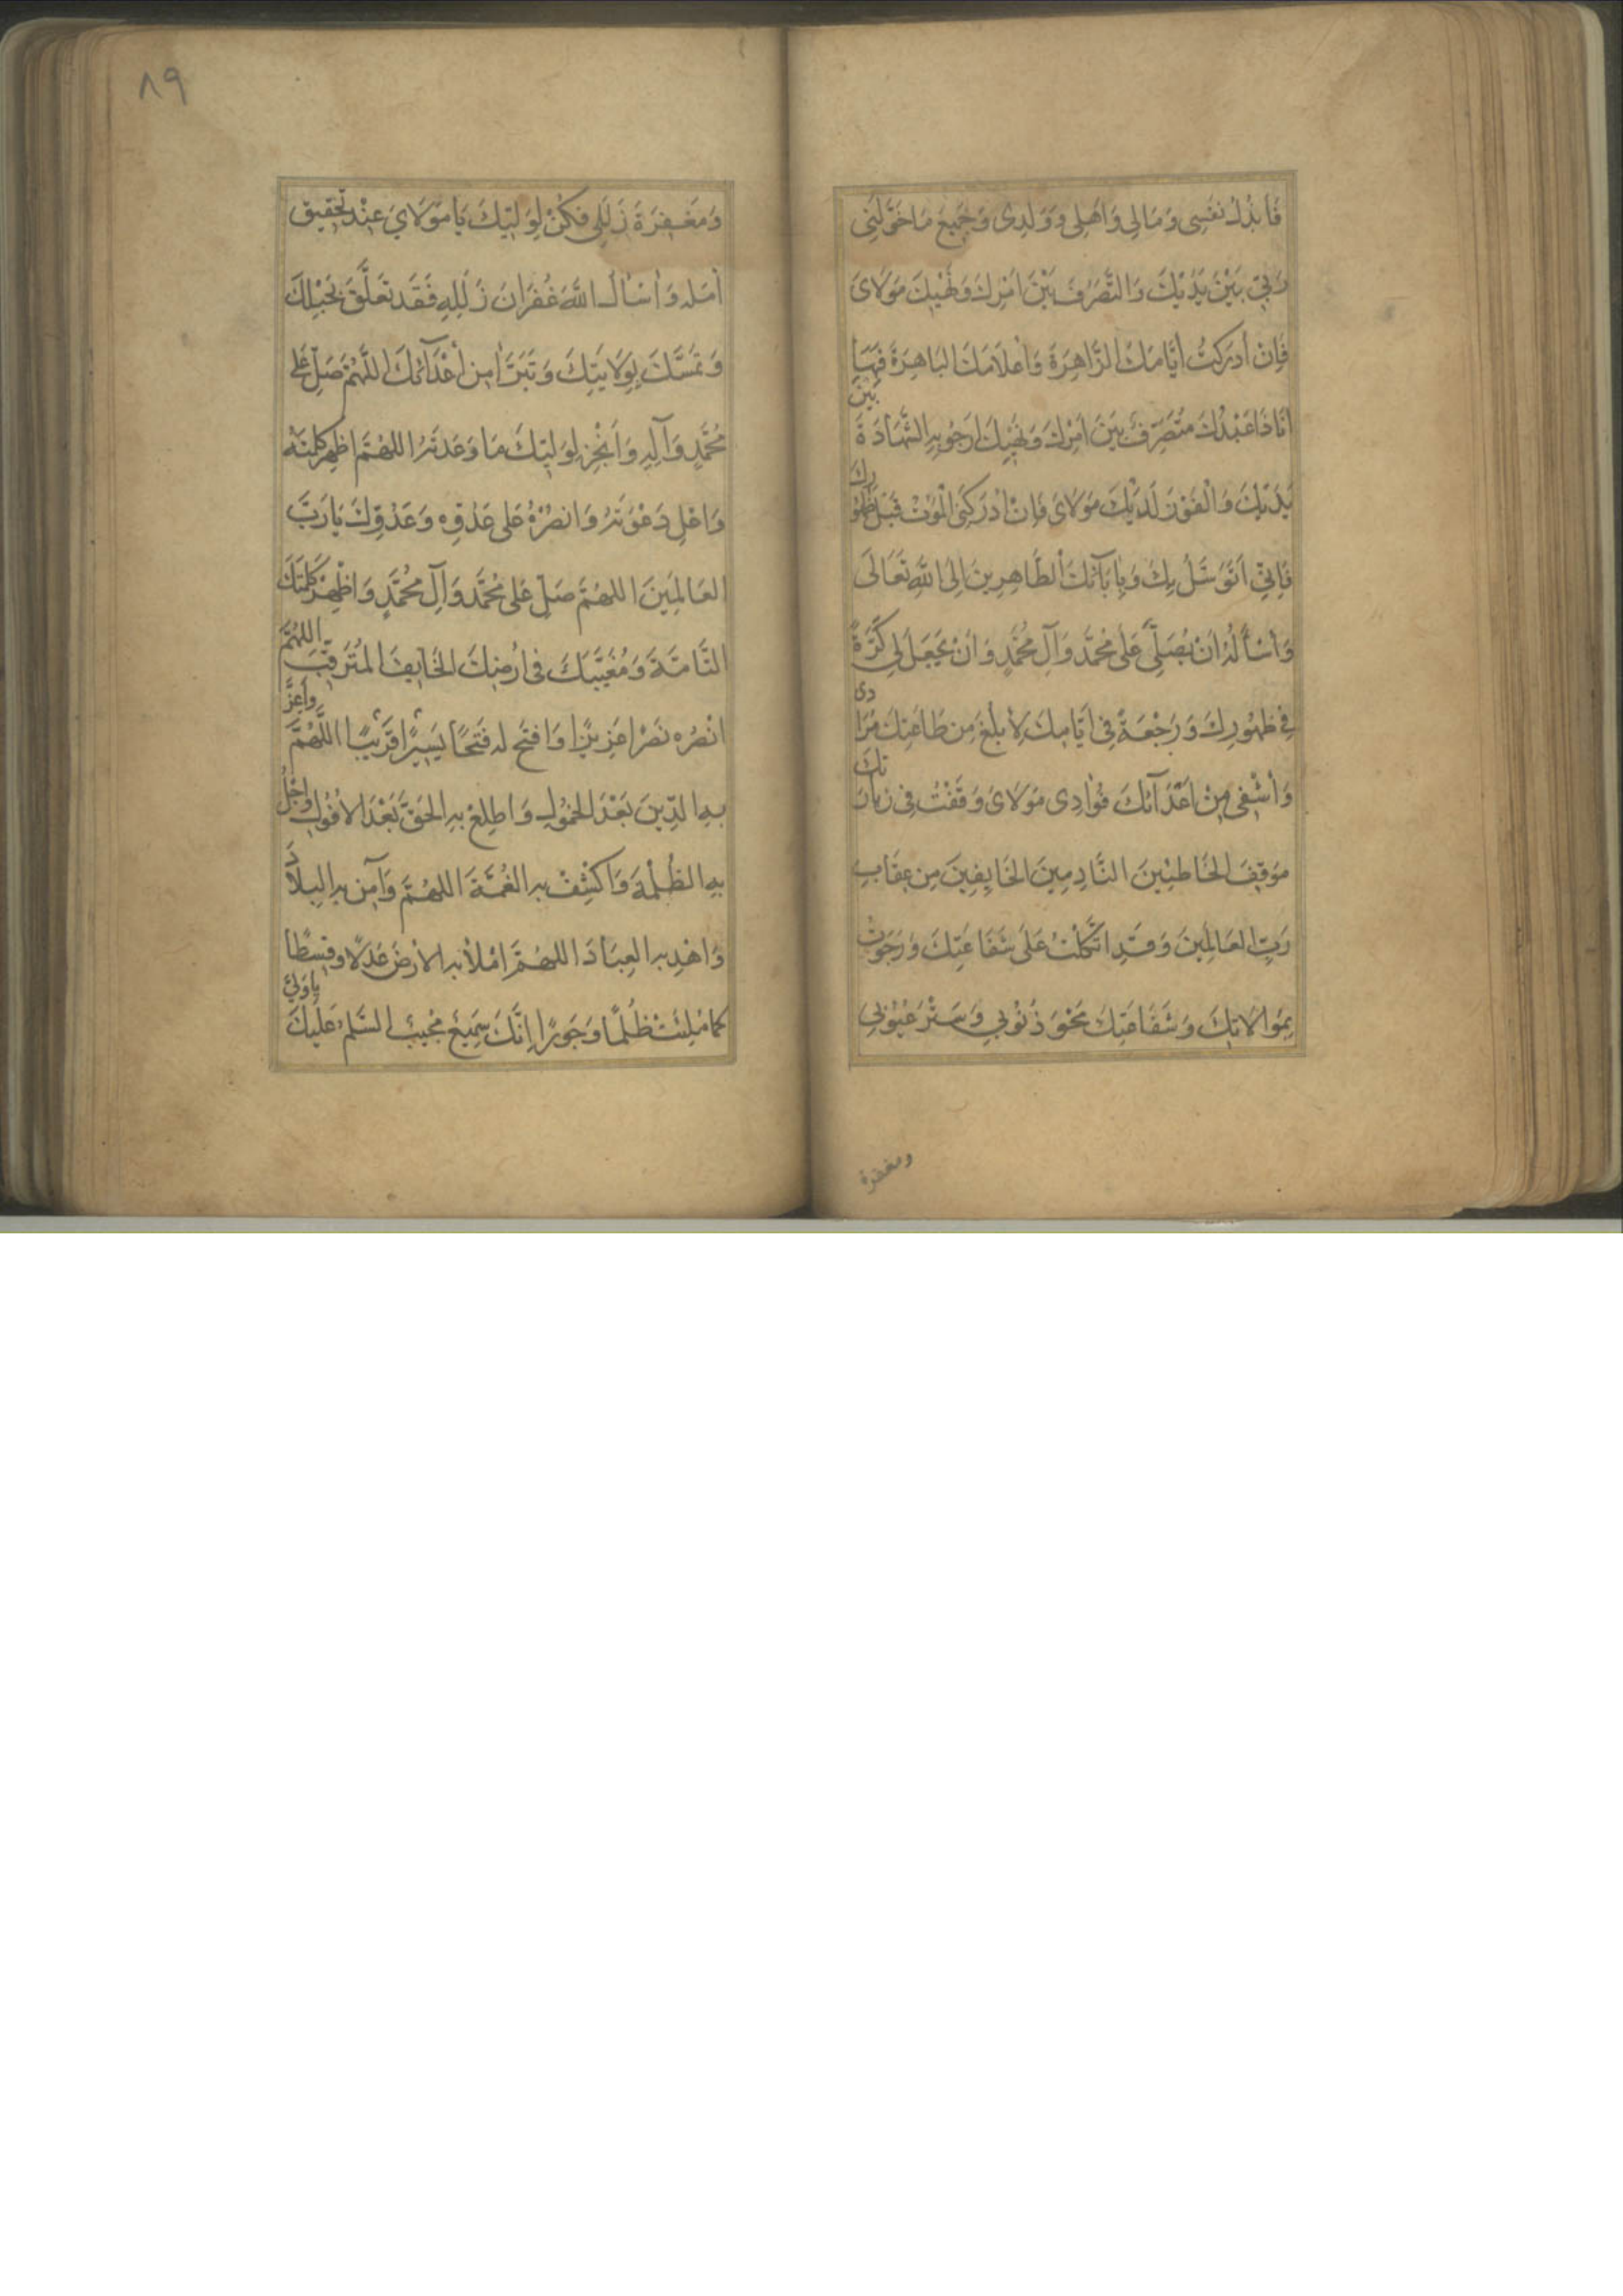 فَأَبْذُلُ نَفْسِي وَمَالِي وَأَهْلِي وَوَلَدِي وَجَمِيعَ مَا خَوَّلَنِي
رَبِّي بَيْنَ يَدَيْكَ وَالتَّصَرُّفَ بَيْنَ أَمْرِكَ وَنَهْيِكَ مَوْلَايَ
فَإِنْ أَدْرَكْتُ أَيَّامَكَ الزَّاهِرَةَ وَأَعْلَامَكَ الْبَاهِرَةَ فَهَا
أَنَا ذَا عَبْدُكَ مُتَصَرِّفٌ بَيْنَ أَمْرِكَ وَنَهْيِكَ أَرْجُو بِهِ الشَّهَادَةَ بَيْنَ
يَدَيْكَ وَالْفَوْزَ لَدَيْكَ مَوْلَايَ فَإِنْ أَدْرَكَنِي الْمَوْتُ قَبْلَ ظُهُورِكَ
فَإِنِّي أَتَوَسَّلُ بِكَ وَبِآبَائِكَ الطَّاهِرِينَ إِلَى اللَّهِ تَعَالَى
وَأَسْأَلُهُ أَنْ يُصَلِّيَ عَلَى مُحَمَّدٍ وَآلِ مُحَمَّدٍ وَأَنْ يَجْعَلَ لِي كَرَّةً
فِي ظُهُورِكَ وَرَجْعَةً فِي أَيَّامِكَ لِأَبْلُغَ مِنْ طَاعَتِكَ مُرَادِي
وَأَشْفِيَ مِنْ أَعْدَائِكَ فُؤَادِي مَوْلَايَ وَقَفْتُ فِي زِيَارَتِكَ
مَوْقِفَ الْخَاطِئِينَ النَّادِمِينَ الْخَائِفِينَ مِنْ عِقَابِ
رَبِّ الْعَالَمِينَ وَقَدِ اتَّكَلْتُ عَلَى شَفَاعَتِكَ وَرَجَوْتُ
بِمُوَالَاتِكَ وَشَفَاعَتِكَ مَحْوَ ذُنُوبِي وَسَتْرَ عُيُوبِي
ومغفرة
٨٩
وَمَغْفِرَةَ زَلَلِي فَكُنْ لِوَلِيِّكَ يَا مَوْلَايَ عِنْدَ تَحْقِيقِ
أَمَلِهِ وَأَسْأَلُ اللَّهَ غُفْرَانَ زَلَلِهِ فَقَدْ تَعَلَّقَ بِحَبْلِكَ
وَتَمَسَّكَ بِوَلَايَتِكَ وَتَبَرَّأَ مِنْ أَعْدَائِكَ اللَّهُمَّ صَلِّ عَلَى
مُحَمَّدٍ وَآلِهِ وَأَنْجِزْ لِوَلِيِّكَ مَا وَعَدْتَهُ اللَّهُمَّ أَظْهِرْ كَلِمَتَهُ
وَأَعْلِ دَعْوَتَهُ وَانْصُرْهُ عَلَى عَدُوِّهِ وَعَدُوِّكَ يَا رَبَّ
الْعَالَمِينَ اللَّهُمَّ صَلِّ عَلَى مُحَمَّدٍ وَآلِ مُحَمَّدٍ وَأَظْهِرْ كَلِمَتَكَ
التَّامَّةَ وَمُغَيَّبَكَ فِي أَرْضِكَ الْخَائِفَ الْمُتَرَقِّبَ اللَّهُمَّ
انْصُرْهُ نَصْرًا عَزِيزًا وَافْتَحْ لَهُ فَتْحًا يَسِيرًا قَرِيبًا اللَّهُمَّ وَأَعِزَّ
بِهِ الدِّينَ بَعْدَ الْخُمُولِ وَأَطْلِعْ بِهِ الْحَقَّ بَعْدَ الْأُفُولِ وَاجْلُ
بِهِ الظُّلْمَةَ وَاكْشِفْ بِهِ الْغُمَّةَ اللَّهُمَّ وَآمِنْ بِهِ الْبِلَادَ
وَاهْدِ بِهِ الْعِبَادَ اللَّهُمَّ امْلَأْ بِهِ الْأَرْضَ عَدْلًا وَقِسْطًا
كَمَا مُلِئَتْ ظُلْمًا وَجَوْرًا إِنَّكَ سَمِيعٌ مُجِيبٌ السَّلَمُ عَلَيْكَ يَا وَلِيَّ